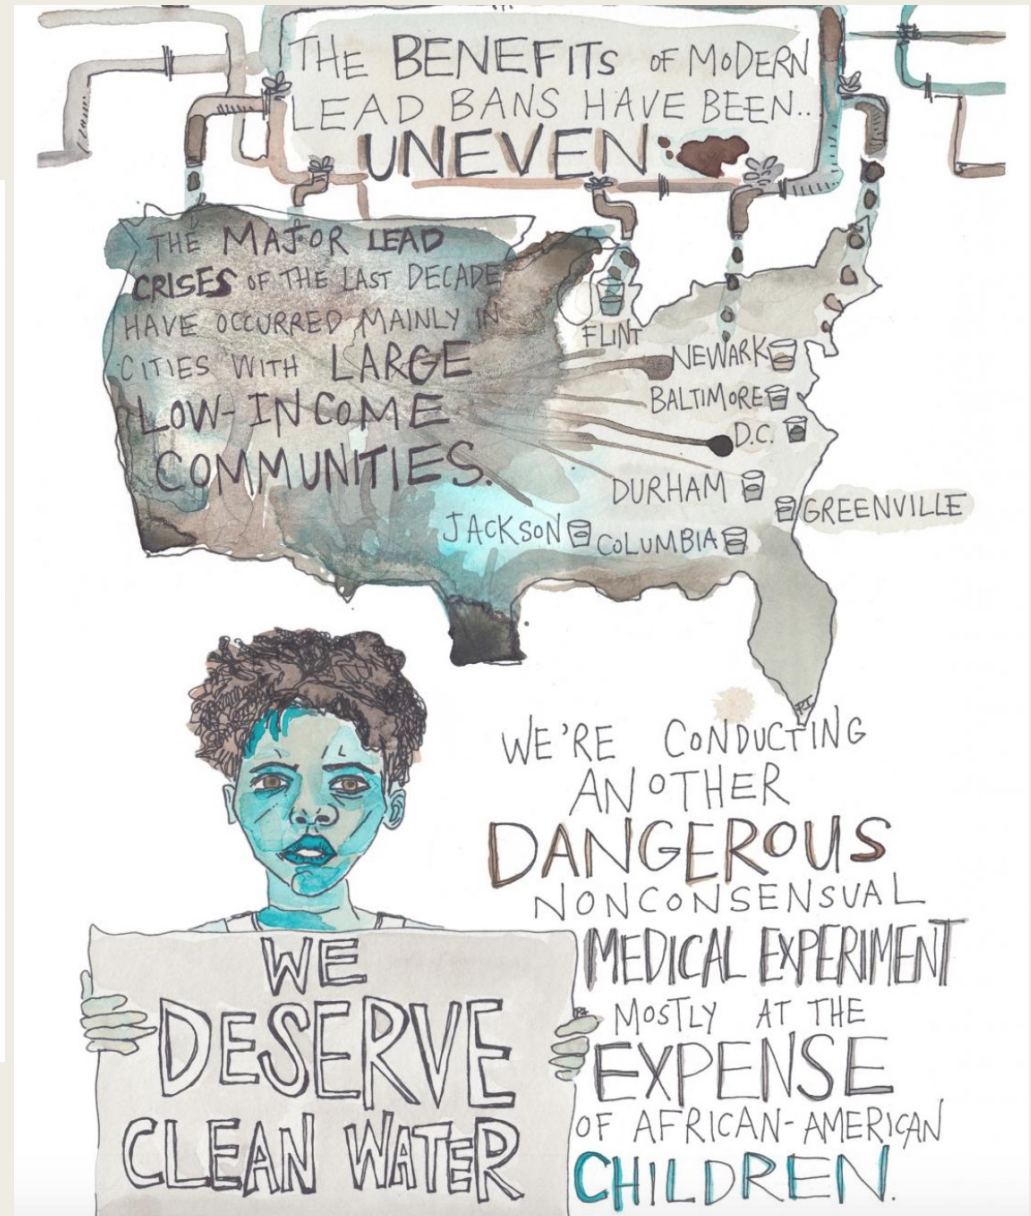 THE BENEFITS OF MODERN
LEAD BANS HAVE BEEN...
UNEVEN.
THE MAJOR LEAD
CRISES OF THE LAST DECADE
HAVE OCCURRED MAINLY IN
CITIES WITH LARGE
LOW-INCOME
COMMUNITIES.
FLINT
NEWARK
BALTIMORE
D.C.
DURHAM
GREENVILLE
JACKSON
COLUMBIA
WE'RE CONDUCTING
ANOTHER
DANGEROUS
NONCONSENSUAL
MEDICAL EXPERIMENT
MOSTLY AT THE
EXPENSE
OF AFRICAN-AMERICAN
CHILDREN.
WE
DESERVE
CLEAN WATER